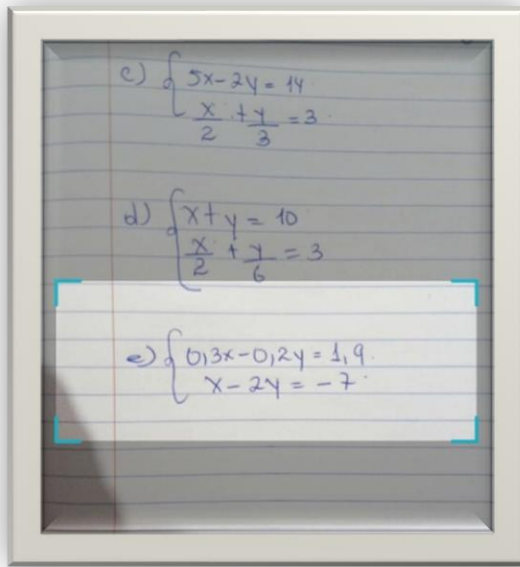 c) { 5x - 2y = 14
x/2 + y/3 = 3
d) { x + y = 10
x/2 + y/6 = 3
e) { 0,3x - 0,2y = 1,9
x - 2y = -7